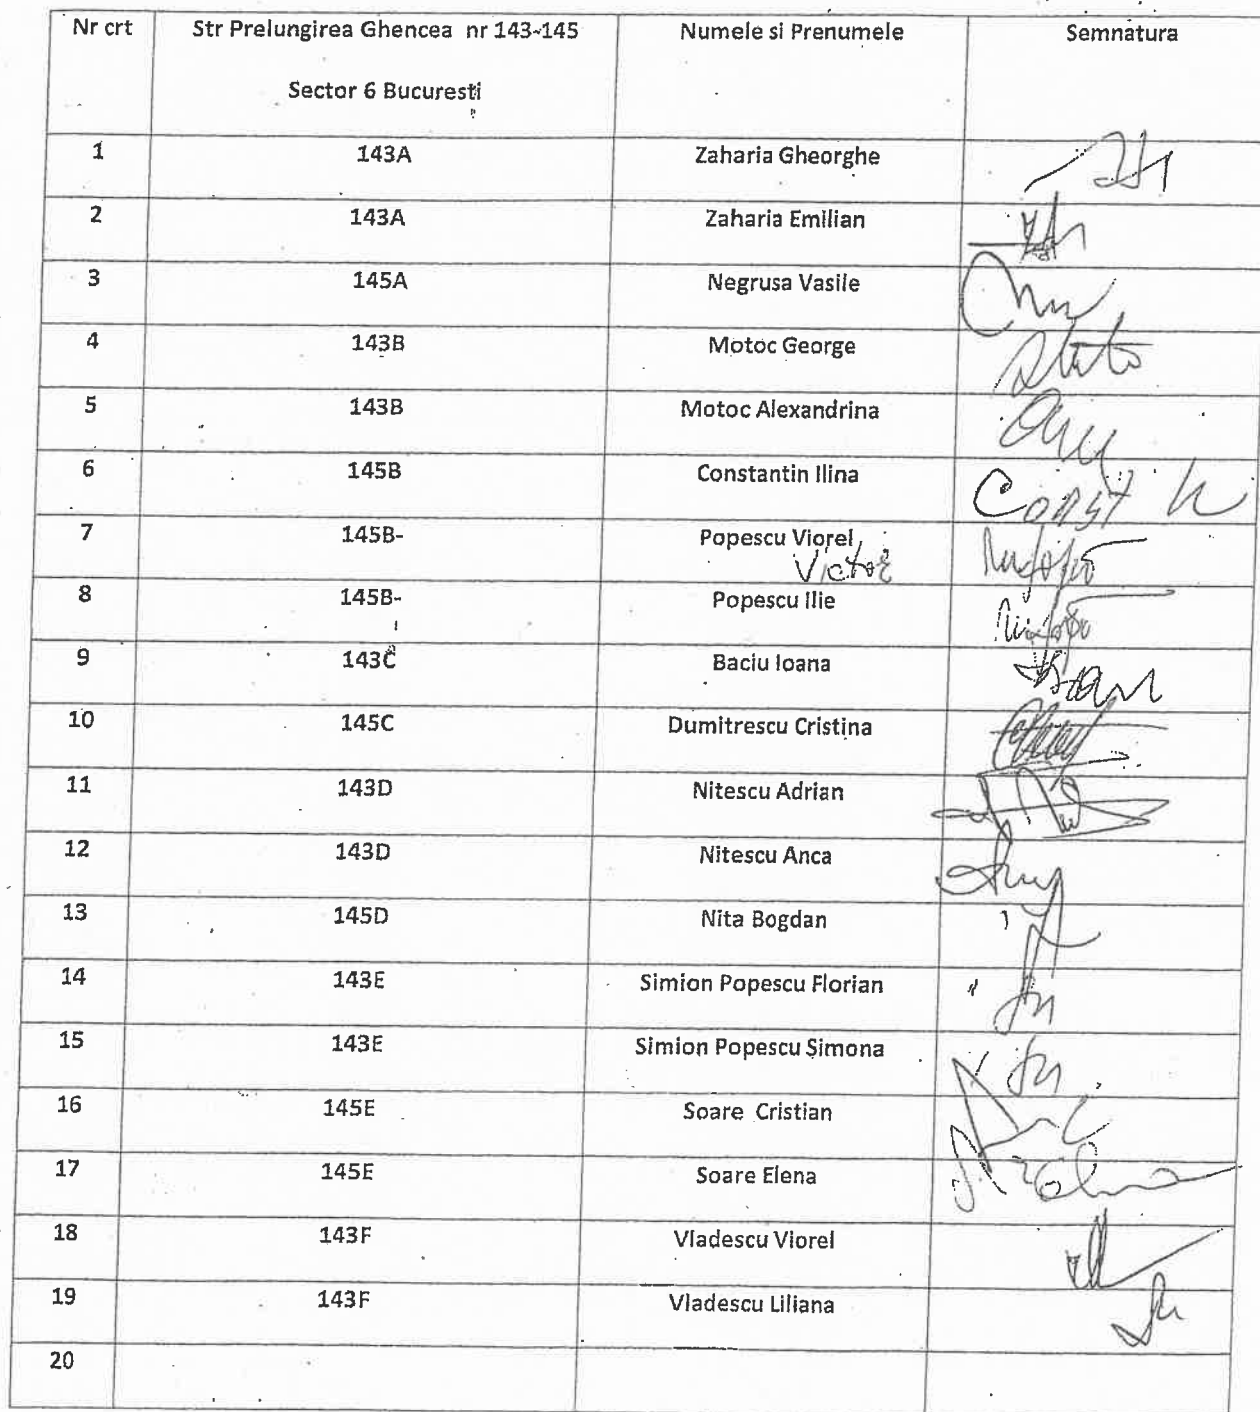 Nr crt Str Prelungirea Ghencea nr 143-145 Numele si Prenumele Semnatura
Sector 6 Bucuresti
1 143A Zaharia Gheorghe
2 143A Zaharia Emilian
3 145A Negrusa Vasile
4 143B Motoc George
5 143B Motoc Alexandrina
6 145B Constantin Ilina Const
7 145B- Popescu Viorel
Victor
8 145B- Popescu Ilie
9 143C Baciu Ioana
10 145C Dumitrescu Cristina
11 143D Nitescu Adrian
12 143D Nitescu Anca
13 145D Nita Bogdan
14 143E Simion Popescu Florian
15 143E Simion Popescu Simona
16 145E Soare Cristian
17 145E Soare Elena
18 143F Vladescu Viorel
19 143F Vladescu Liliana
20